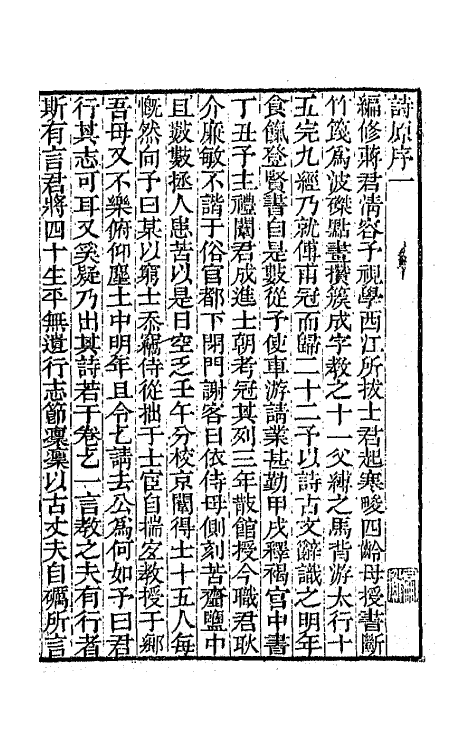 詩原序一
編修蔣君淸容予視學西江所拔士君起寒畯四齡母授書斷
竹篾爲波磔點畫攢簇成字教之十一父縛之馬背游太行十
五完九經乃就傅甫冠而歸二十二予以詩古文辭識之明年
食餼登賢書自是數從予使車游請業甚勤甲戌釋褐官中書
丁丑予主禮闈君成進士朝考冠其列三年散館授今職君耿
介廉敏不諧于俗官都下閉門謝客日依侍母側刻苦齏鹽中
且數數拯人患苦以是日空乏壬午分校京闈得士十五人每
慨然向予曰某以窮士忝竊侍從拙于士宦自揣宜教授于鄉
吾母又不樂俯仰塵土中明年且合乞請去公爲何如予曰君
行其志可耳又奚疑乃出其詩若干卷乞一言教之夫有行者
斯有言君將四十生平無遺行志節凛凛以古丈夫自礪所言